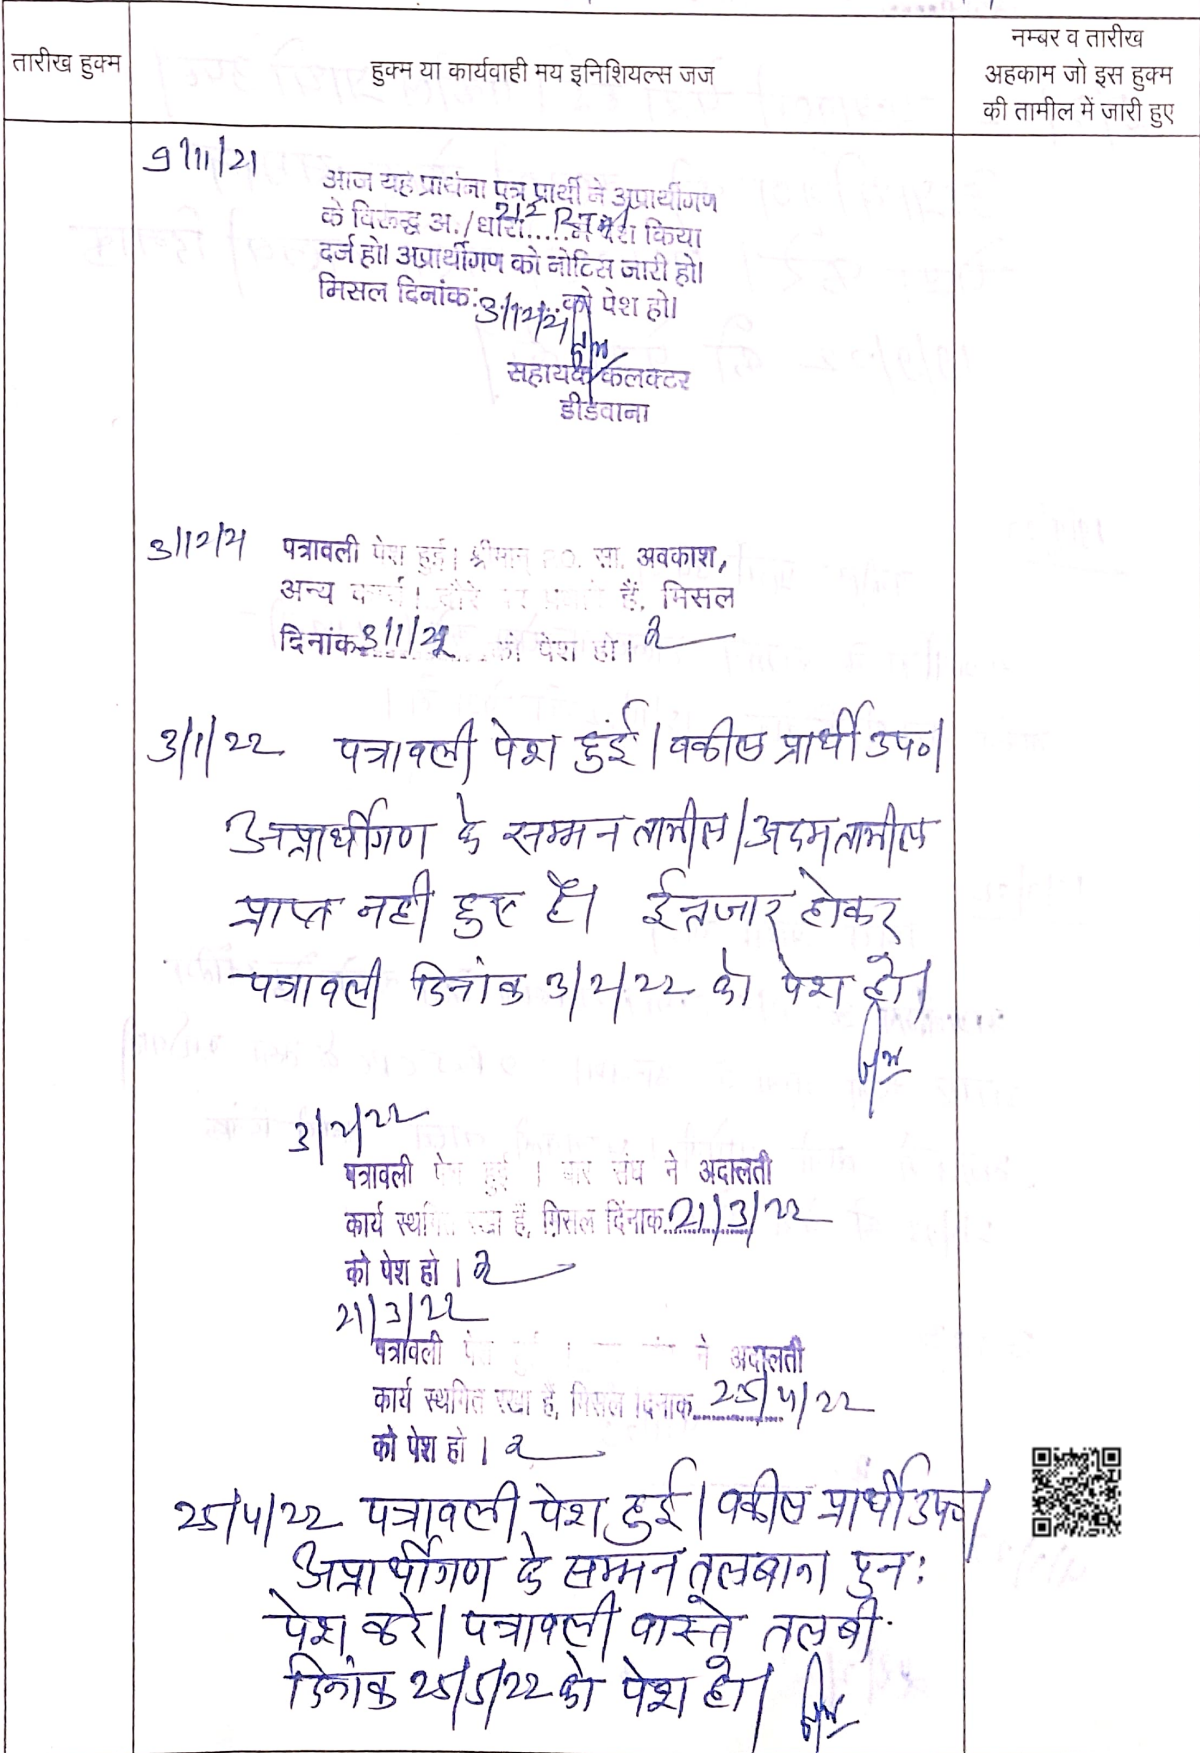 तारीख हुक्म
हुक्म या कार्यवाही मय इनिशियल्स जज
नम्बर व तारीख
अहकाम जो इस हुक्म
की तामील में जारी हुए
9/11/21
आज यह प्रार्थना पत्र प्रार्थी ने अप्रार्थीगण
के विरूद्ध अ./धारा 212 RTA में पेश किया
दर्ज हो। अप्रार्थीगण को नोटिस जारी हो।
मिसल दिनांक 3/12/21 को पेश हो।
सहायक कलक्टर
डीडवाना
3/12/21 पत्रावली पेश हुई। श्रीमान् सा. अवकाश,
अन्य कार्य। दौरे पर हैं, मिसल
दिनांक 3/1/22 को पेश हो।
3/1/22 पत्रावली पेश हुई। वकील प्रार्थी उप०।
अप्रार्थीगण के सम्मन तामील/अदम तामील
प्राप्त नही हुए है। ईन्तजार होकर
पत्रावली दिनांक 3/2/22 को पेश हो।
3/2/22
पत्रावली पेश हुई । बार संघ ने अदालती
कार्य स्थगित रखा हैं, मिसल दिंनाक 21/3/22
को पेश हो ।
21/3/22
पत्रावली ने अदालती
कार्य स्थगित रखा हैं, मिसल दिनाक 25/4/22
को पेश हो ।
25/4/22 पत्रावली पेश हुई। वकील प्रार्थी उप०।
अप्रार्थीगण के सम्मन तलबाना पुनः
पेश करे। पत्रावली वास्ते तलबी
दिनांक 25/5/22 को पेश हो।